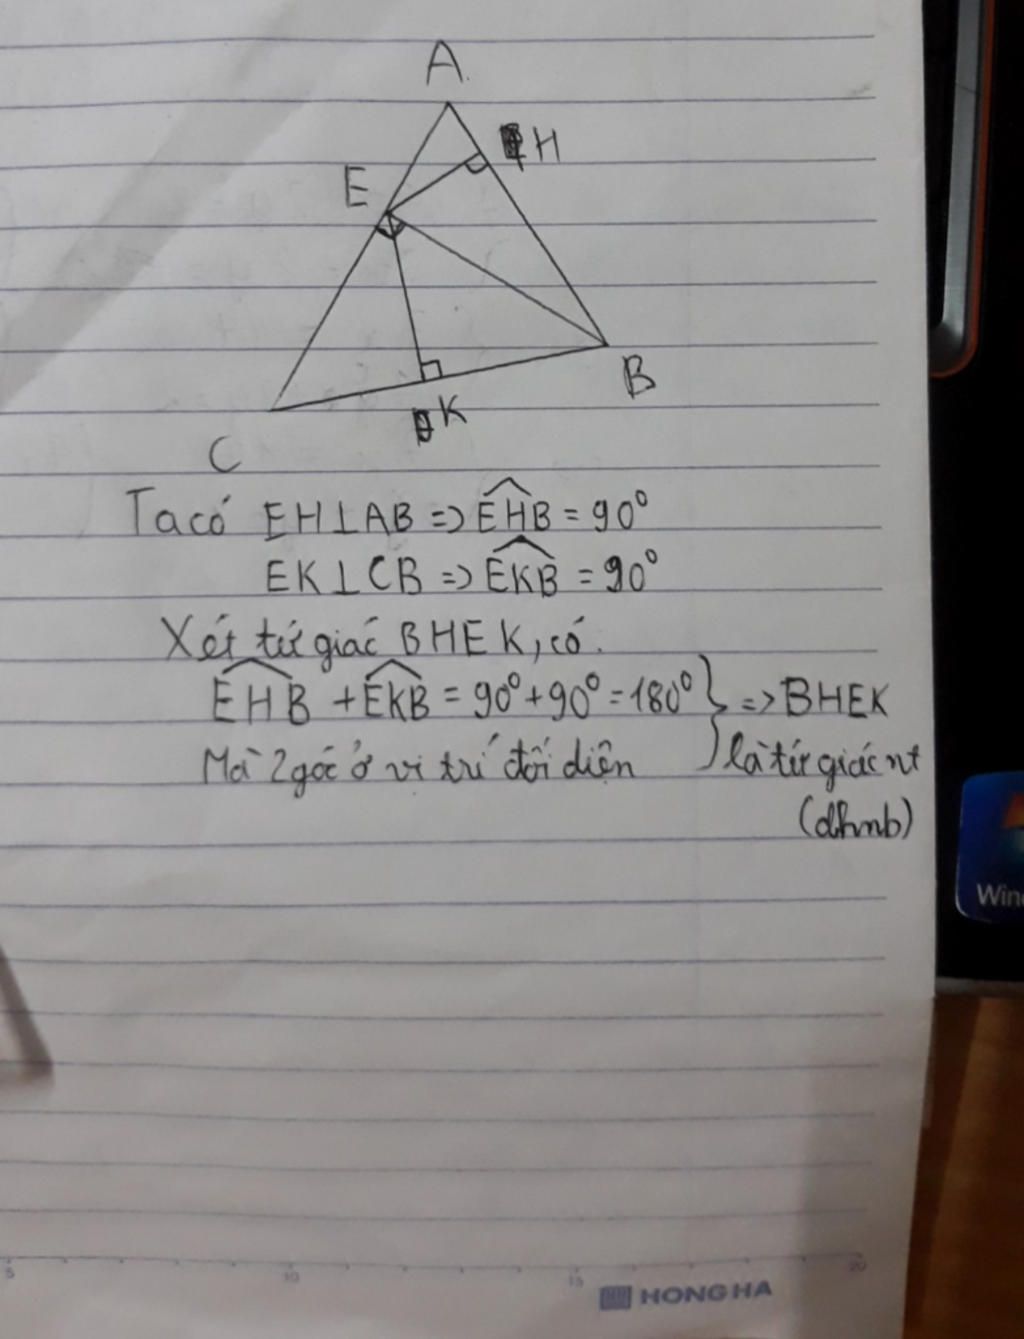 A
H
E
B
K
C
Ta có EH⊥AB => \widehat{EHB} = 90°
EK⊥CB => \widehat{EKB} = 90°
Xét tứ giác BHEK, có.
\widehat{EHB} + \widehat{EKB} = 90° + 90° = 180° } => BHEK
Mà 2 góc ở vị trí đối diện } là tứ giác nt
(dhnb)
Win
5 10 15 20
HONG HA